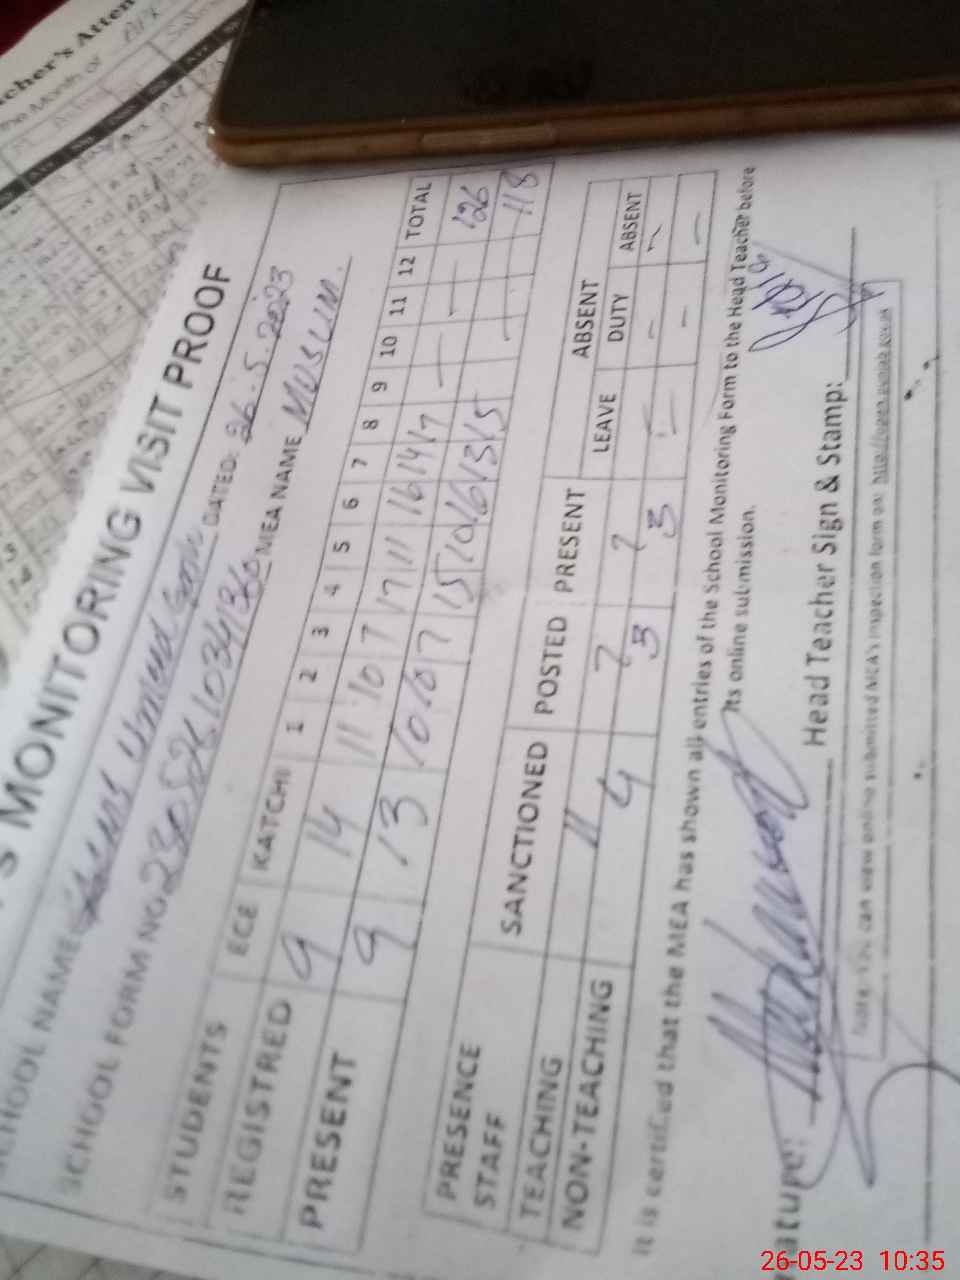 cher's Atten
the Month of
'S MONITORING VISIT PROOF
SCHOOL NAME DATED: 26.5.2023
SCHOOL FORM NO 23052610341360 MEA NAME MUSLIM.
STUDENTS ECE KATCHI 1 2 3 4 5 6 7 8 9 10 11 12 TOTAL
REGISTRED 9 14 11 10 7 17 11 16 14 17 — — 126
PRESENT 9 13 10 10 7 15 10 16 13 15 — 118
PRESENCE STAFF SANCTIONED POSTED PRESENT LEAVE ABSENT DUTY ABSENT
TEACHING 11 7 7 — — —
NON-TEACHING 4 3 3 — — —
It is certified that the MEA has shown all entries of the School Monitoring Form to the Head Teacher before
its online submission.
ature: Head Teacher Sign & Stamp:
Note: You can view online submitted MEA's inspection form on:
26-05-23 10:35